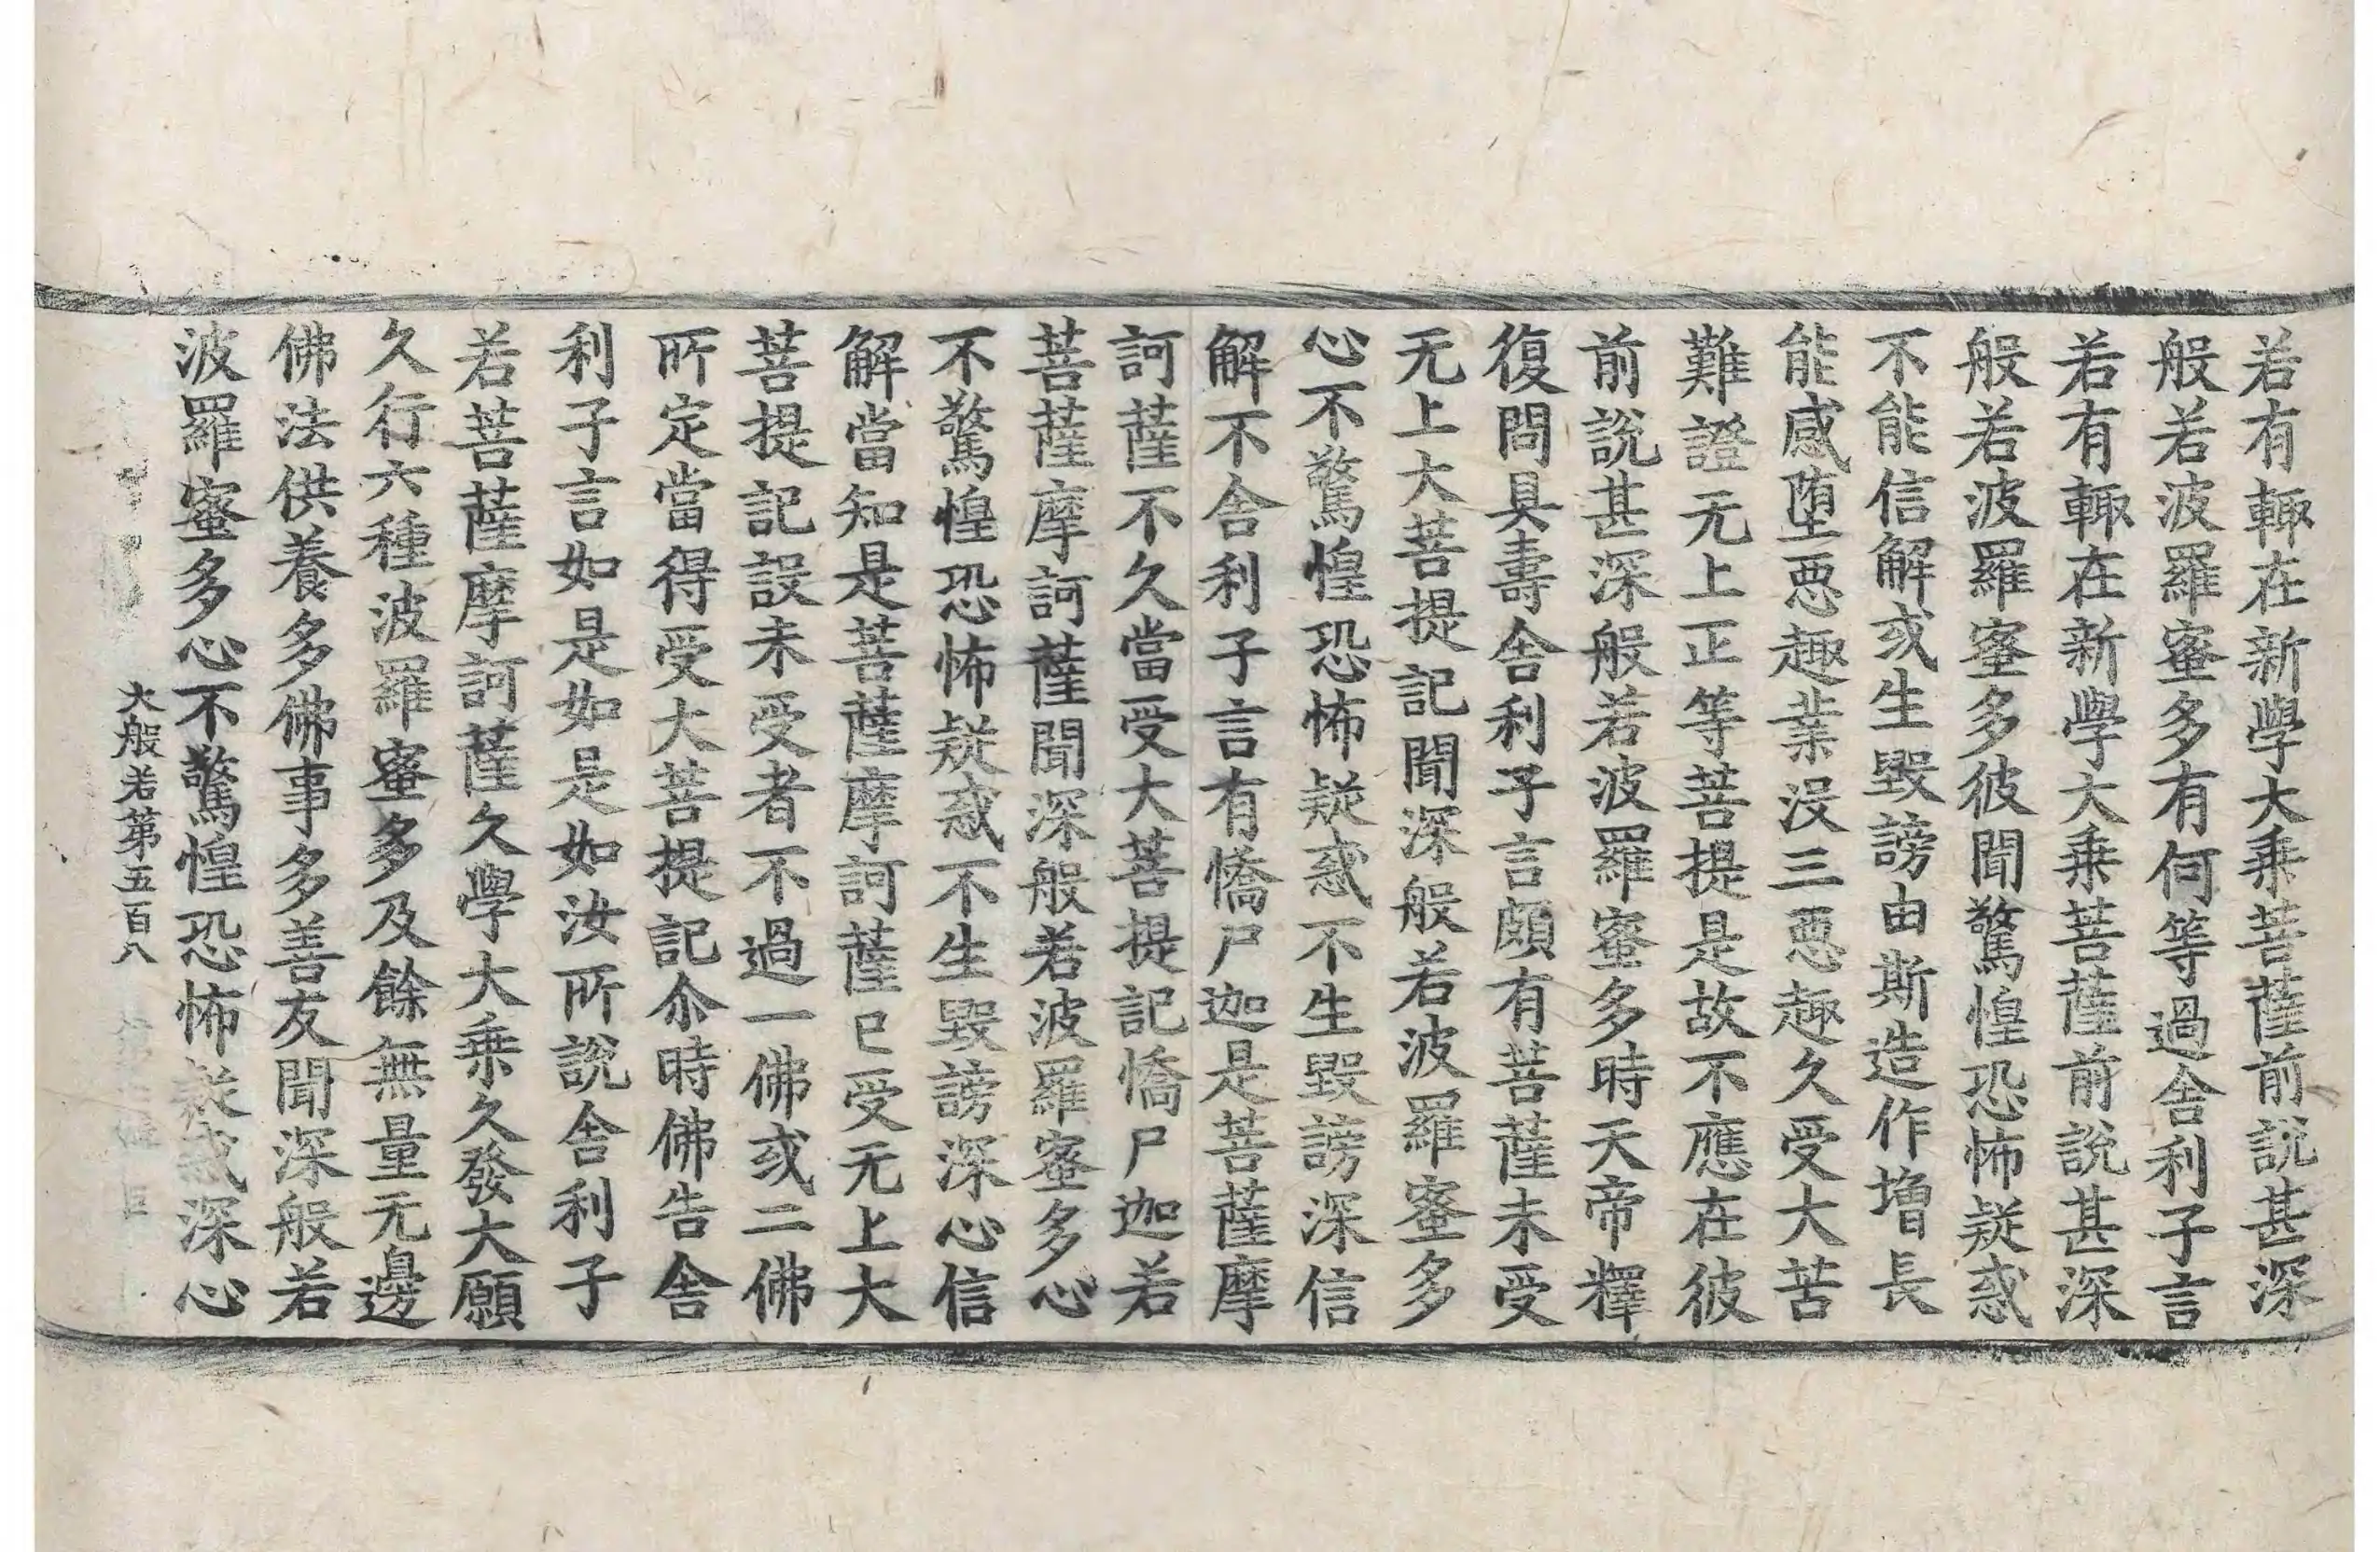 若有輙在新學大乗菩薩前說甚深
般若波羅蜜多有何等過舍利子言
若有輙在新學大乗菩薩前說甚深
般若波羅蜜多彼聞驚惶恐怖疑惑
不能信解或生毀謗由斯造作增長
能感堕惡趣業没三惡趣久受大苦
難證无上正等菩提是故不應在彼
前說甚深般若波羅蜜多時天帝釋
復問具壽舍利子言頗有菩薩未受
无上大菩提記聞深般若波羅蜜多
心不驚惶恐怖疑惑不生毀謗深信
解不舍利子言有憍尸迦是菩薩摩
訶薩不久當受大菩提記憍尸迦若
菩薩摩訶薩聞深般若波羅蜜多心
不驚惶恐怖疑惑不生毀謗深心信
解當知是菩薩摩訶薩已受无上大
菩提記設未受者不過一佛或二佛
所定當得受大菩提記尒時佛告舍
利子言如是如是如汝所說舍利子
若菩薩摩訶薩久學大乗久發大願
久行六種波羅蜜多及餘無量无邊
佛法供養多佛事多善友聞深般若
波羅蜜多心不驚惶恐怖疑惑深心
大般若第五百八